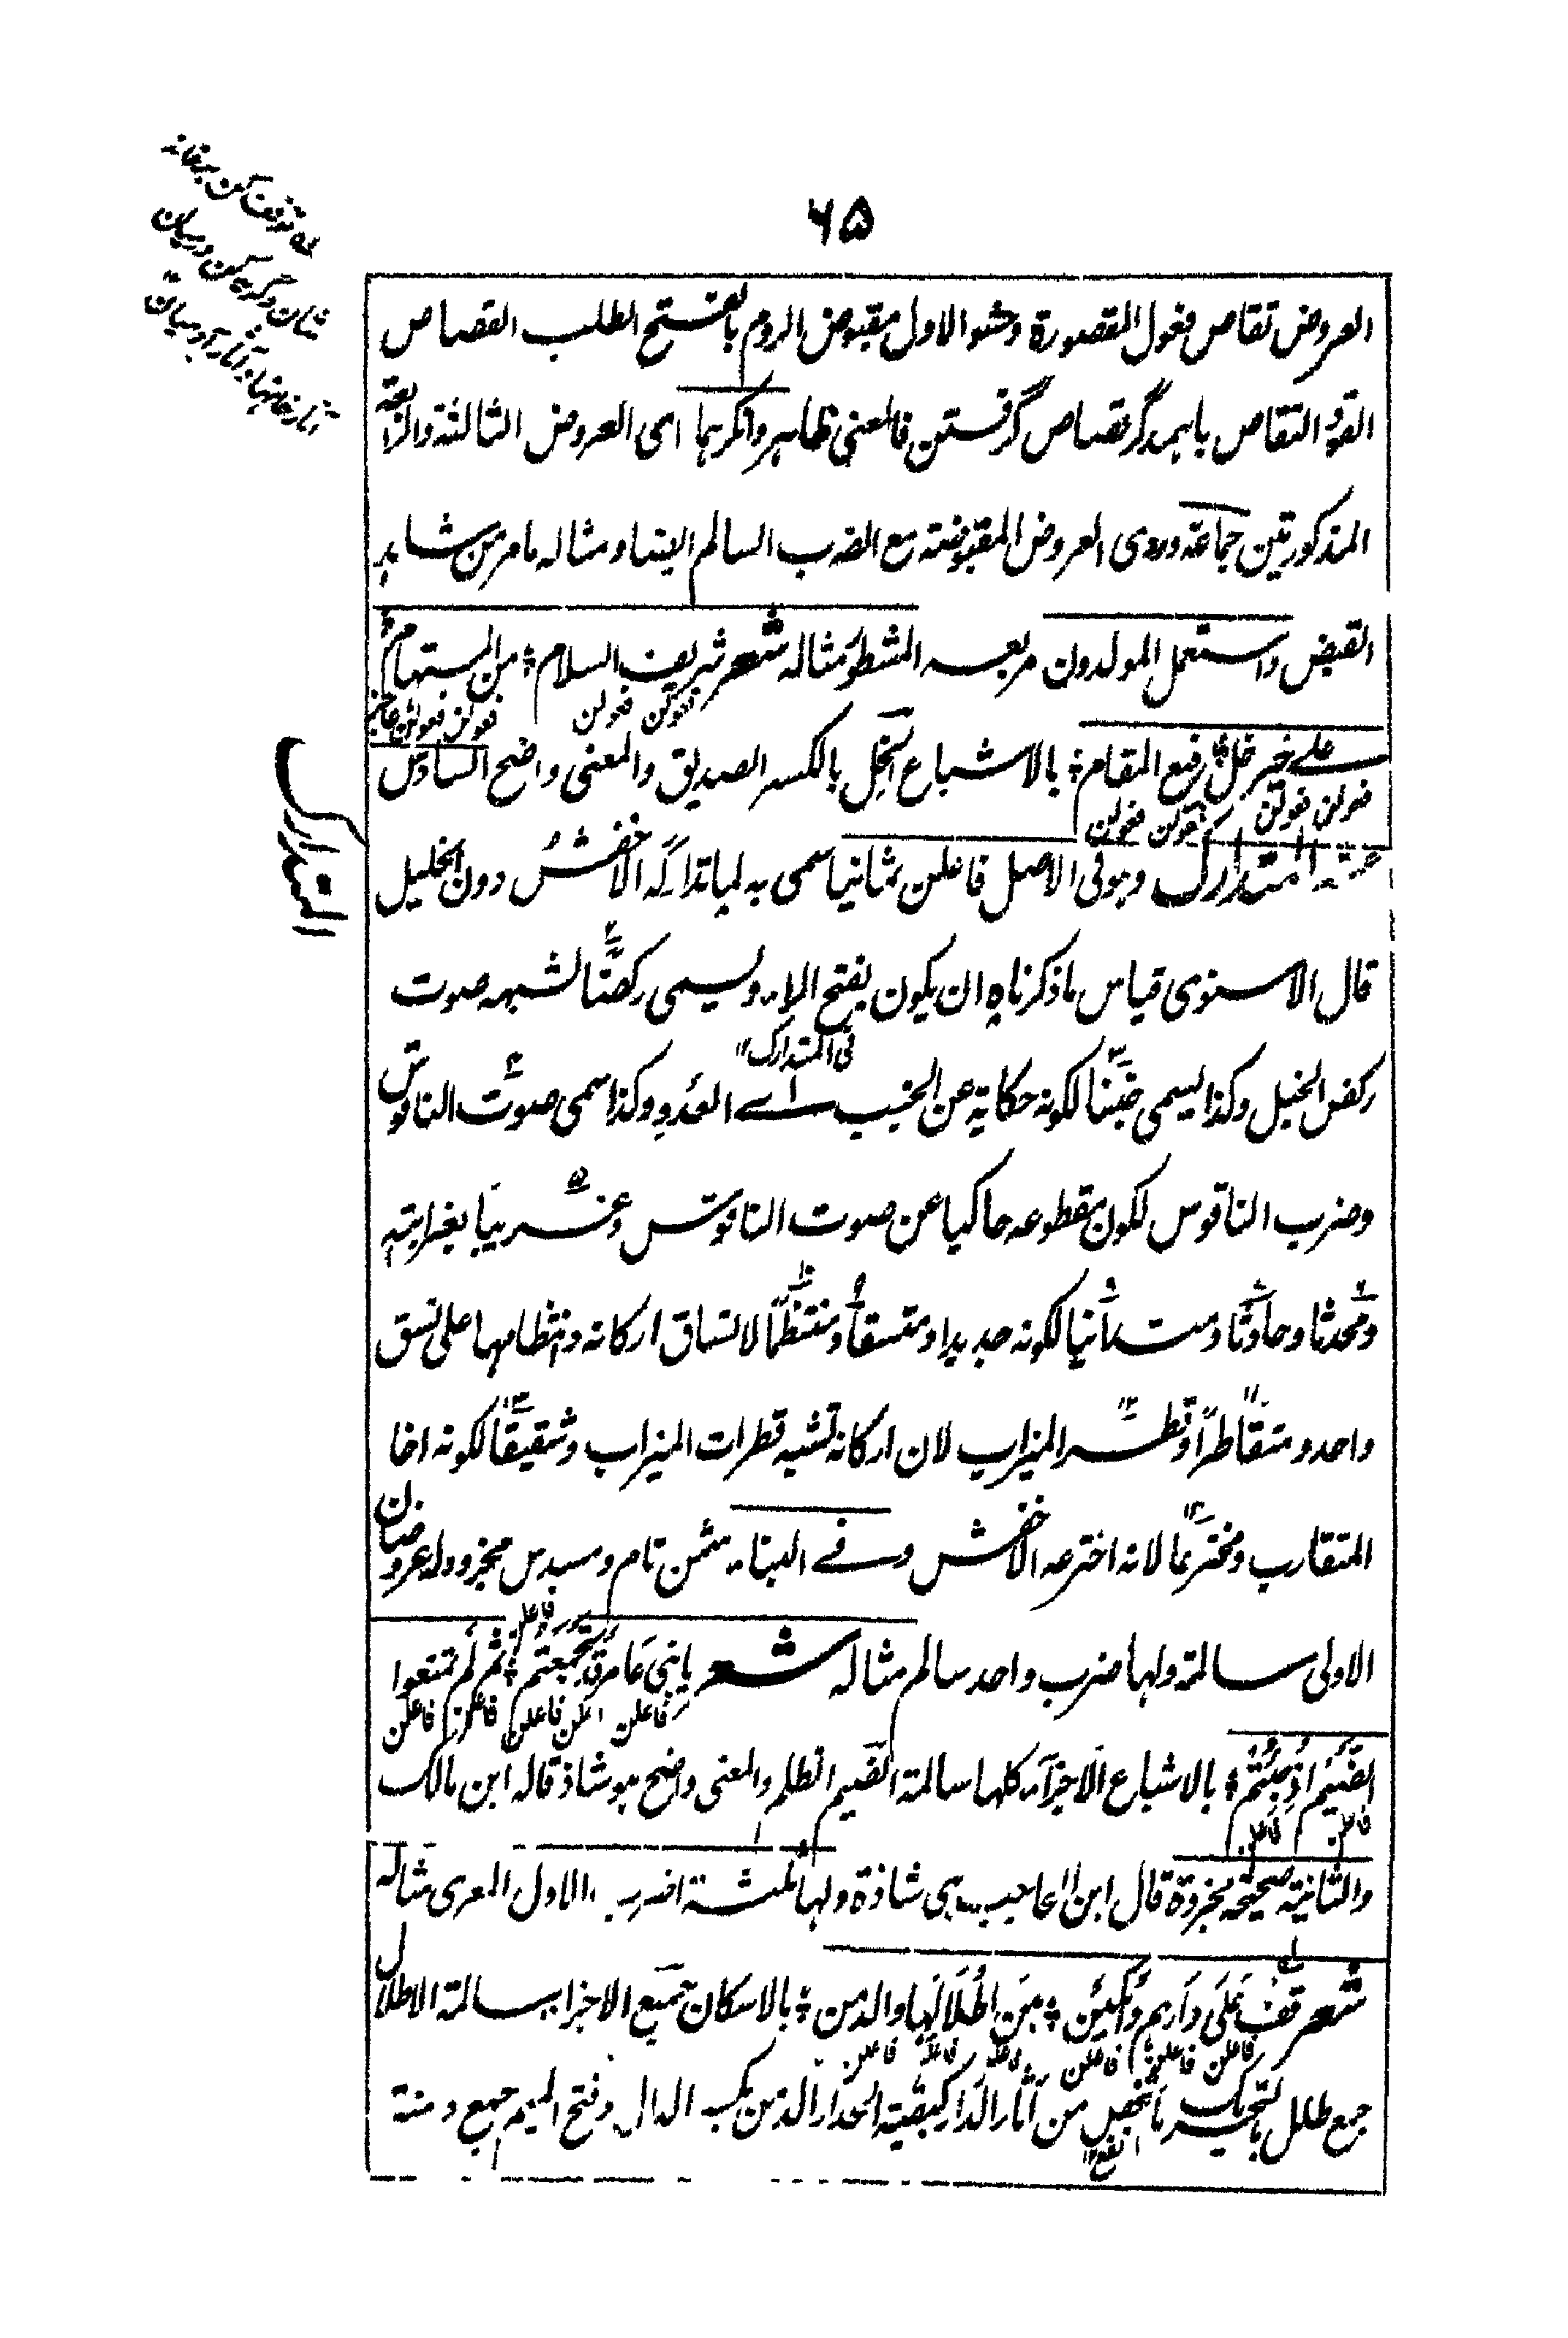 ٦٥
العروض تقاص فعول المقصورة وحشو الاول مقبوض الروم بالفتح الطلب القصاص
القود التقاص باہمدگر قصاص گرفتن فالمعنی ظاہر وانکرہما ای العروض الثالثة والرابعة
المذکورتین جماعة وروی العروض المقبوضة مع الضرب السالم ایضا ومثاله مامر من شاہد
القبض واستعمل المولدون مربعه المشطور مثاله شعر شریف السلام ؛ من المستهام
فعولن فعولن فعولن فعولن
علے خیر خل رفیع المقام ؛ بالاشباع الخل بالکسر الصدیق والمعنی واضح السادس
فعولن فعولن فعولن فعولن
عشر المتدارک وہو فی الاصل فاعلن ثمانیا سمی به لما تدارکه الاخفش دون الخلیل
المتدارک
قال الاسنوی قیاس ما ذکرناہ ان یکون بفتح الراء ویسمی رکضا لشبهه صوت
فی المتدارک
رکض الخیل وکذا یسمی خببا لکونه حکایة عن الخبب اے العدو وکذا سمی صوت الناقوس
وضرب الناقوس لکون مقطوعه حاکیا عن صوت الناقوس وغریبا بغرابته
ومحدثا وحادثا ومستانیا لکونه جدیدا ومتسقا ومنتظما لاتساق ارکانه وانتظامها علی نسق
واحد ومتقاطرا وقطر المیزاب لان ارکانه تشبه قطرات المیزاب وشقیقا لکونه اخا
المتقارب ومخترعا لانه اخترعه الاخفش وفے البناء مثمن تام ومسدس مجزو وله عروضان
الاولی سالمة ولها ضرب واحد سالم مثاله شعر یا بنی عامر قد تجمعتم ؛ ثم لم تمنعوا
فاعلن فاعلن فاعلن فاعلن فاعلن فاعلن
الضیم اذ جئتم ؛ بالاشباع الاجزاء کلها سالمة الضیم الظلم والمعنی واضح ہو شاذ قاله ابن مالک
فاعلن فاعلن
والثانیة صحیحة مجزوة قال ابن الحاجب ہی شاذة ولها ثلثة اضرب الاول المعری مثاله
شعر قف علی دارہم وابکین ؛ بین اطلالها والدمن ؛ بالاسکان جمیع الاجزاء سالمة الاطلال
فاعلن فاعلن فاعلن فاعلن فاعلن فاعلن
جمع طلل بالتحریک ما شخص من آثار الدار کبقیة الجدار الدمن بکسر الدال وفتح المیم جمع دمنة